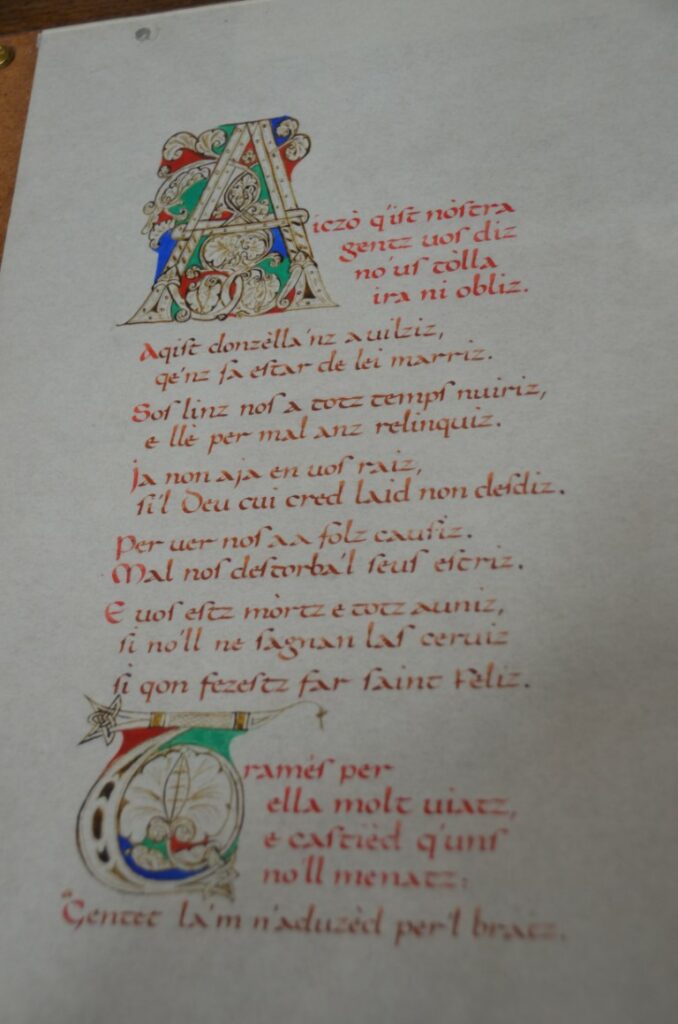 Aiczò q'ist nòstra
gentz vos diz
no'us tòlla
ira ni obliz.
Aqist donzèlla'nz avilziz,
qe'nz fa estar de lei marriz.
Sos linz nos a totz temps nuiriz,
e llè per mal anz relinquiz.
Ja non aja en vos raiz,
si'l Deu cui cred laid non desdiz.
Per ver nos a a folz causiz.
Mal nos destorba'l seus estriz.
E vos estz mòrtz e totz auniz,
si no'll ne sagnan las cerviz
si qon fezestz far saint Feliz.
Tramés per
ella molt viatz,
e castièd q'uns
no'll menatz:
"Gentet la'm n'aduzèd per'l bratz.